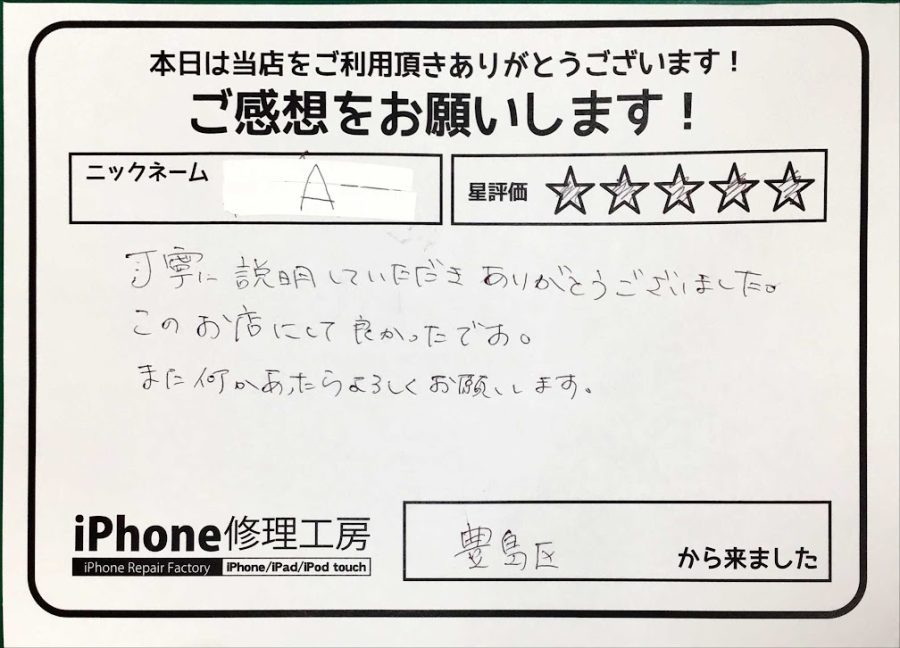 本日は当店をご利用頂きありがとうございます！
ご感想をお願いします！
ニックネーム A
星評価
丁寧に説明していただきありがとうございました。
このお店にして良かったです。
また何かあったらよろしくお願いします。
iPhone修理工房
iPhone Repair Factory iPhone/iPad/iPod touch
豊島区 から来ました